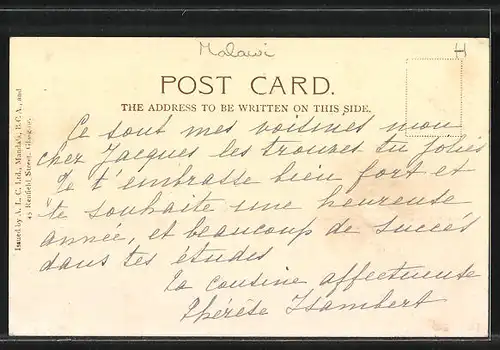 Malawi
H
POST CARD.
THE ADDRESS TO BE WRITTEN ON THIS SIDE.
Issued by A. L. C. Ltd., Mandala, B.C.A., and
45 Renfield Street, Glasgow.
Ce sont mes voisines mon
cher Jacques les trouves tu jolies
Je t'embrasse bien fort et
te souhaite une heureuse
année, et beaucoup de succés
dans tes études
ta cousine affectueuse
Thérèse Isambert